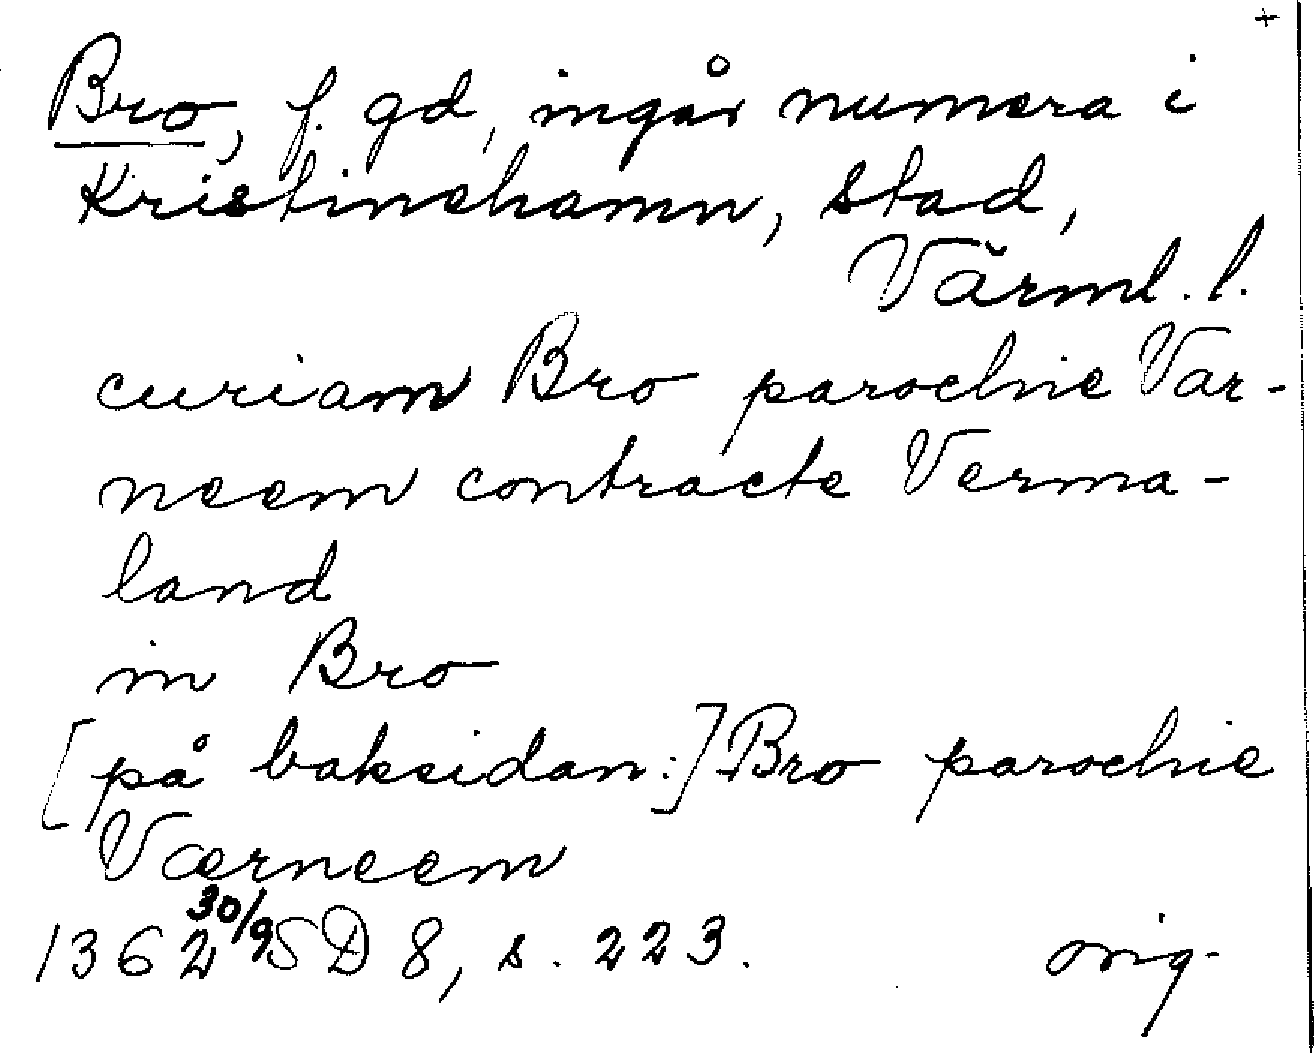 +
Bro, f. gd, ingår numera i
Kristinehamn, stad,
Värml. l.
curiam Bro parochie Var-
neem contracte Verma-
land
in Bro
[på baksidan:] Bro parochie
Værneem
1362 30/9 SD 8, s. 223. orig.